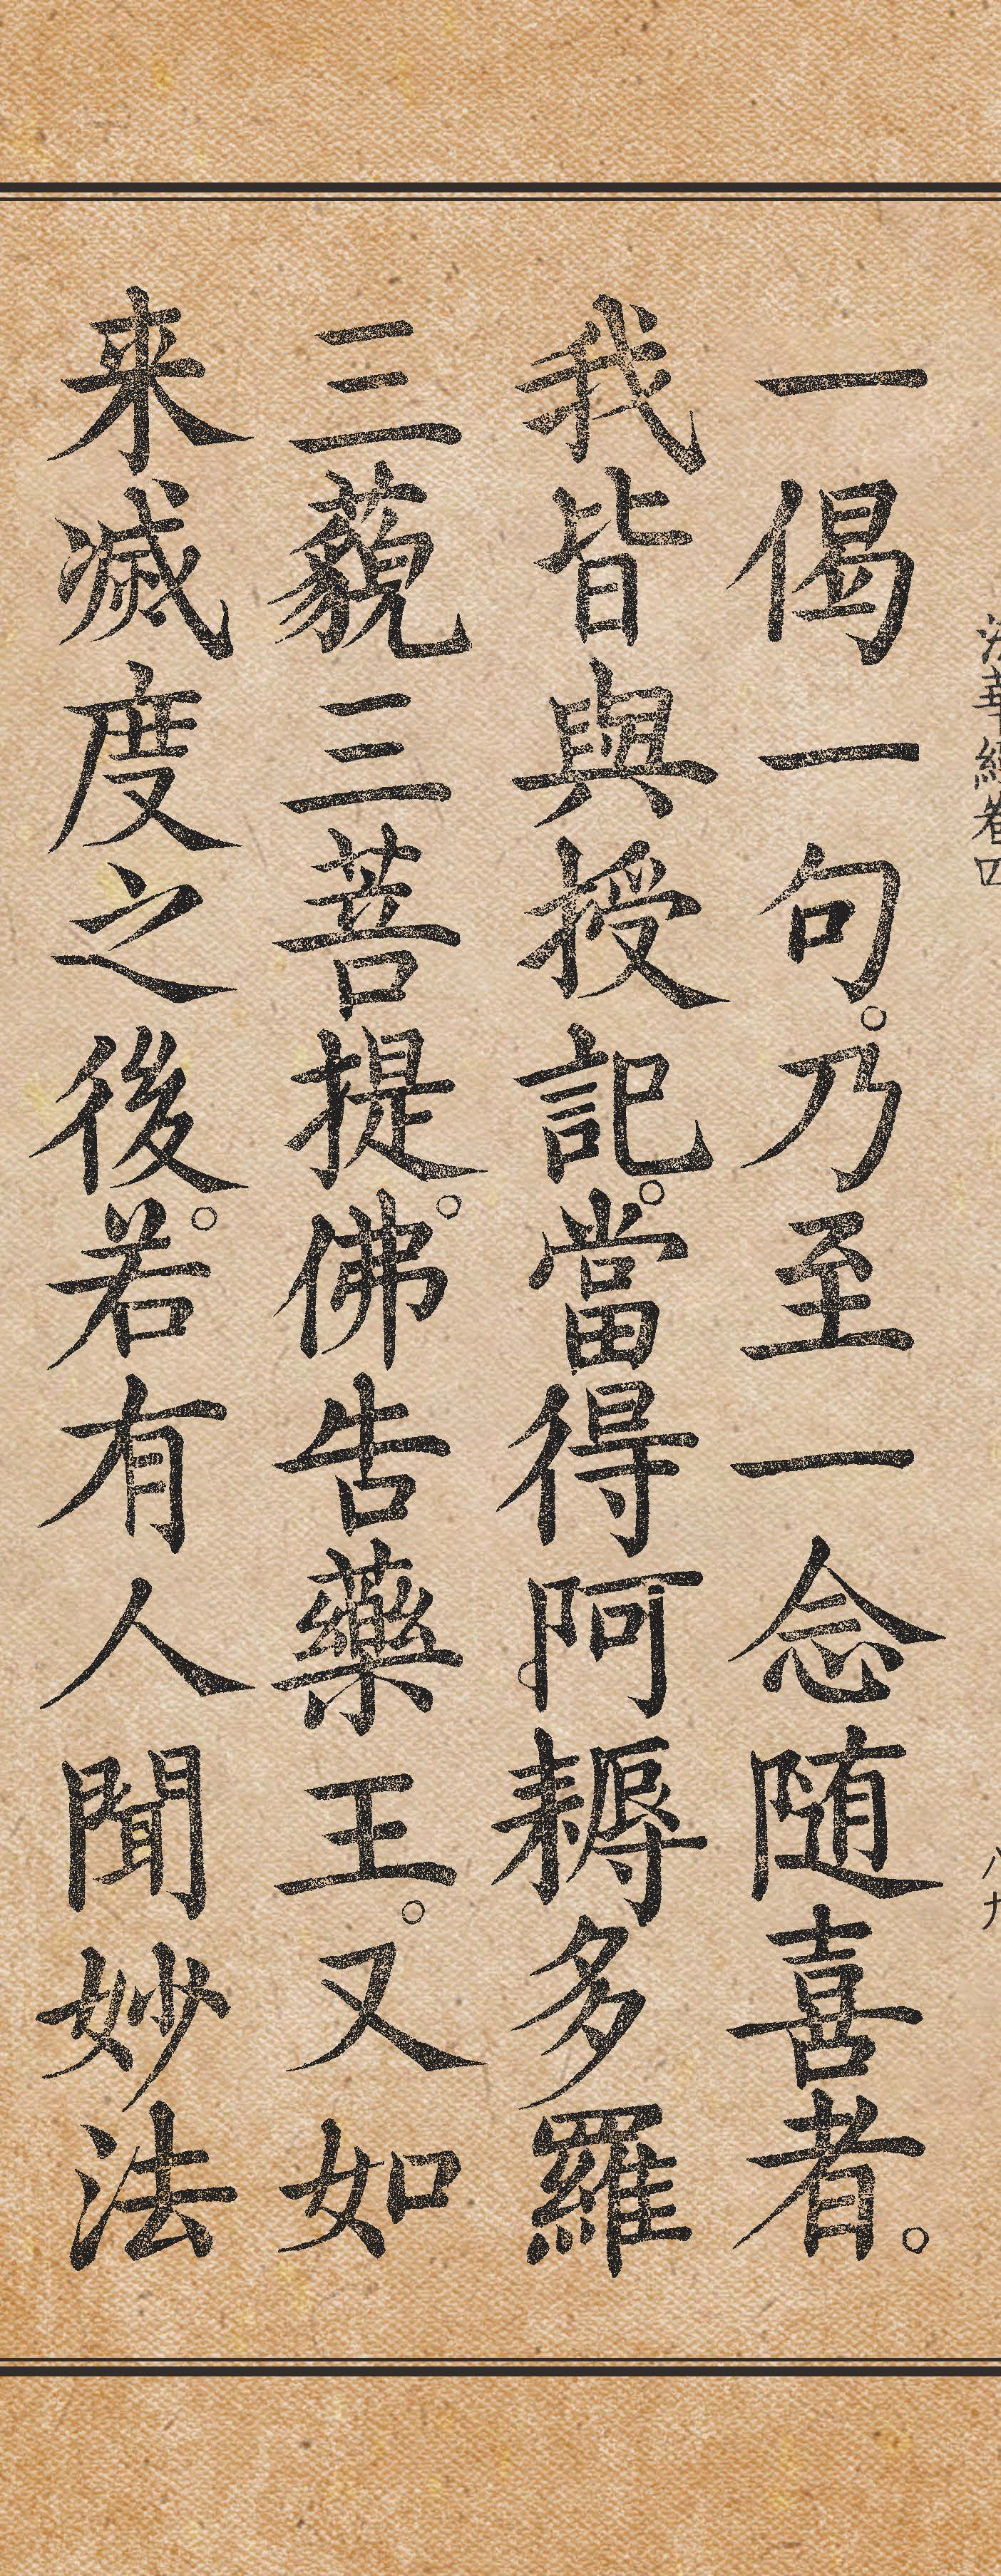 法華經卷四
八九
一偈一句。乃至一念随喜者。
我皆與授記。當得阿耨多羅
三藐三菩提。佛告藥王。又如
来滅度之後。若有人聞妙法